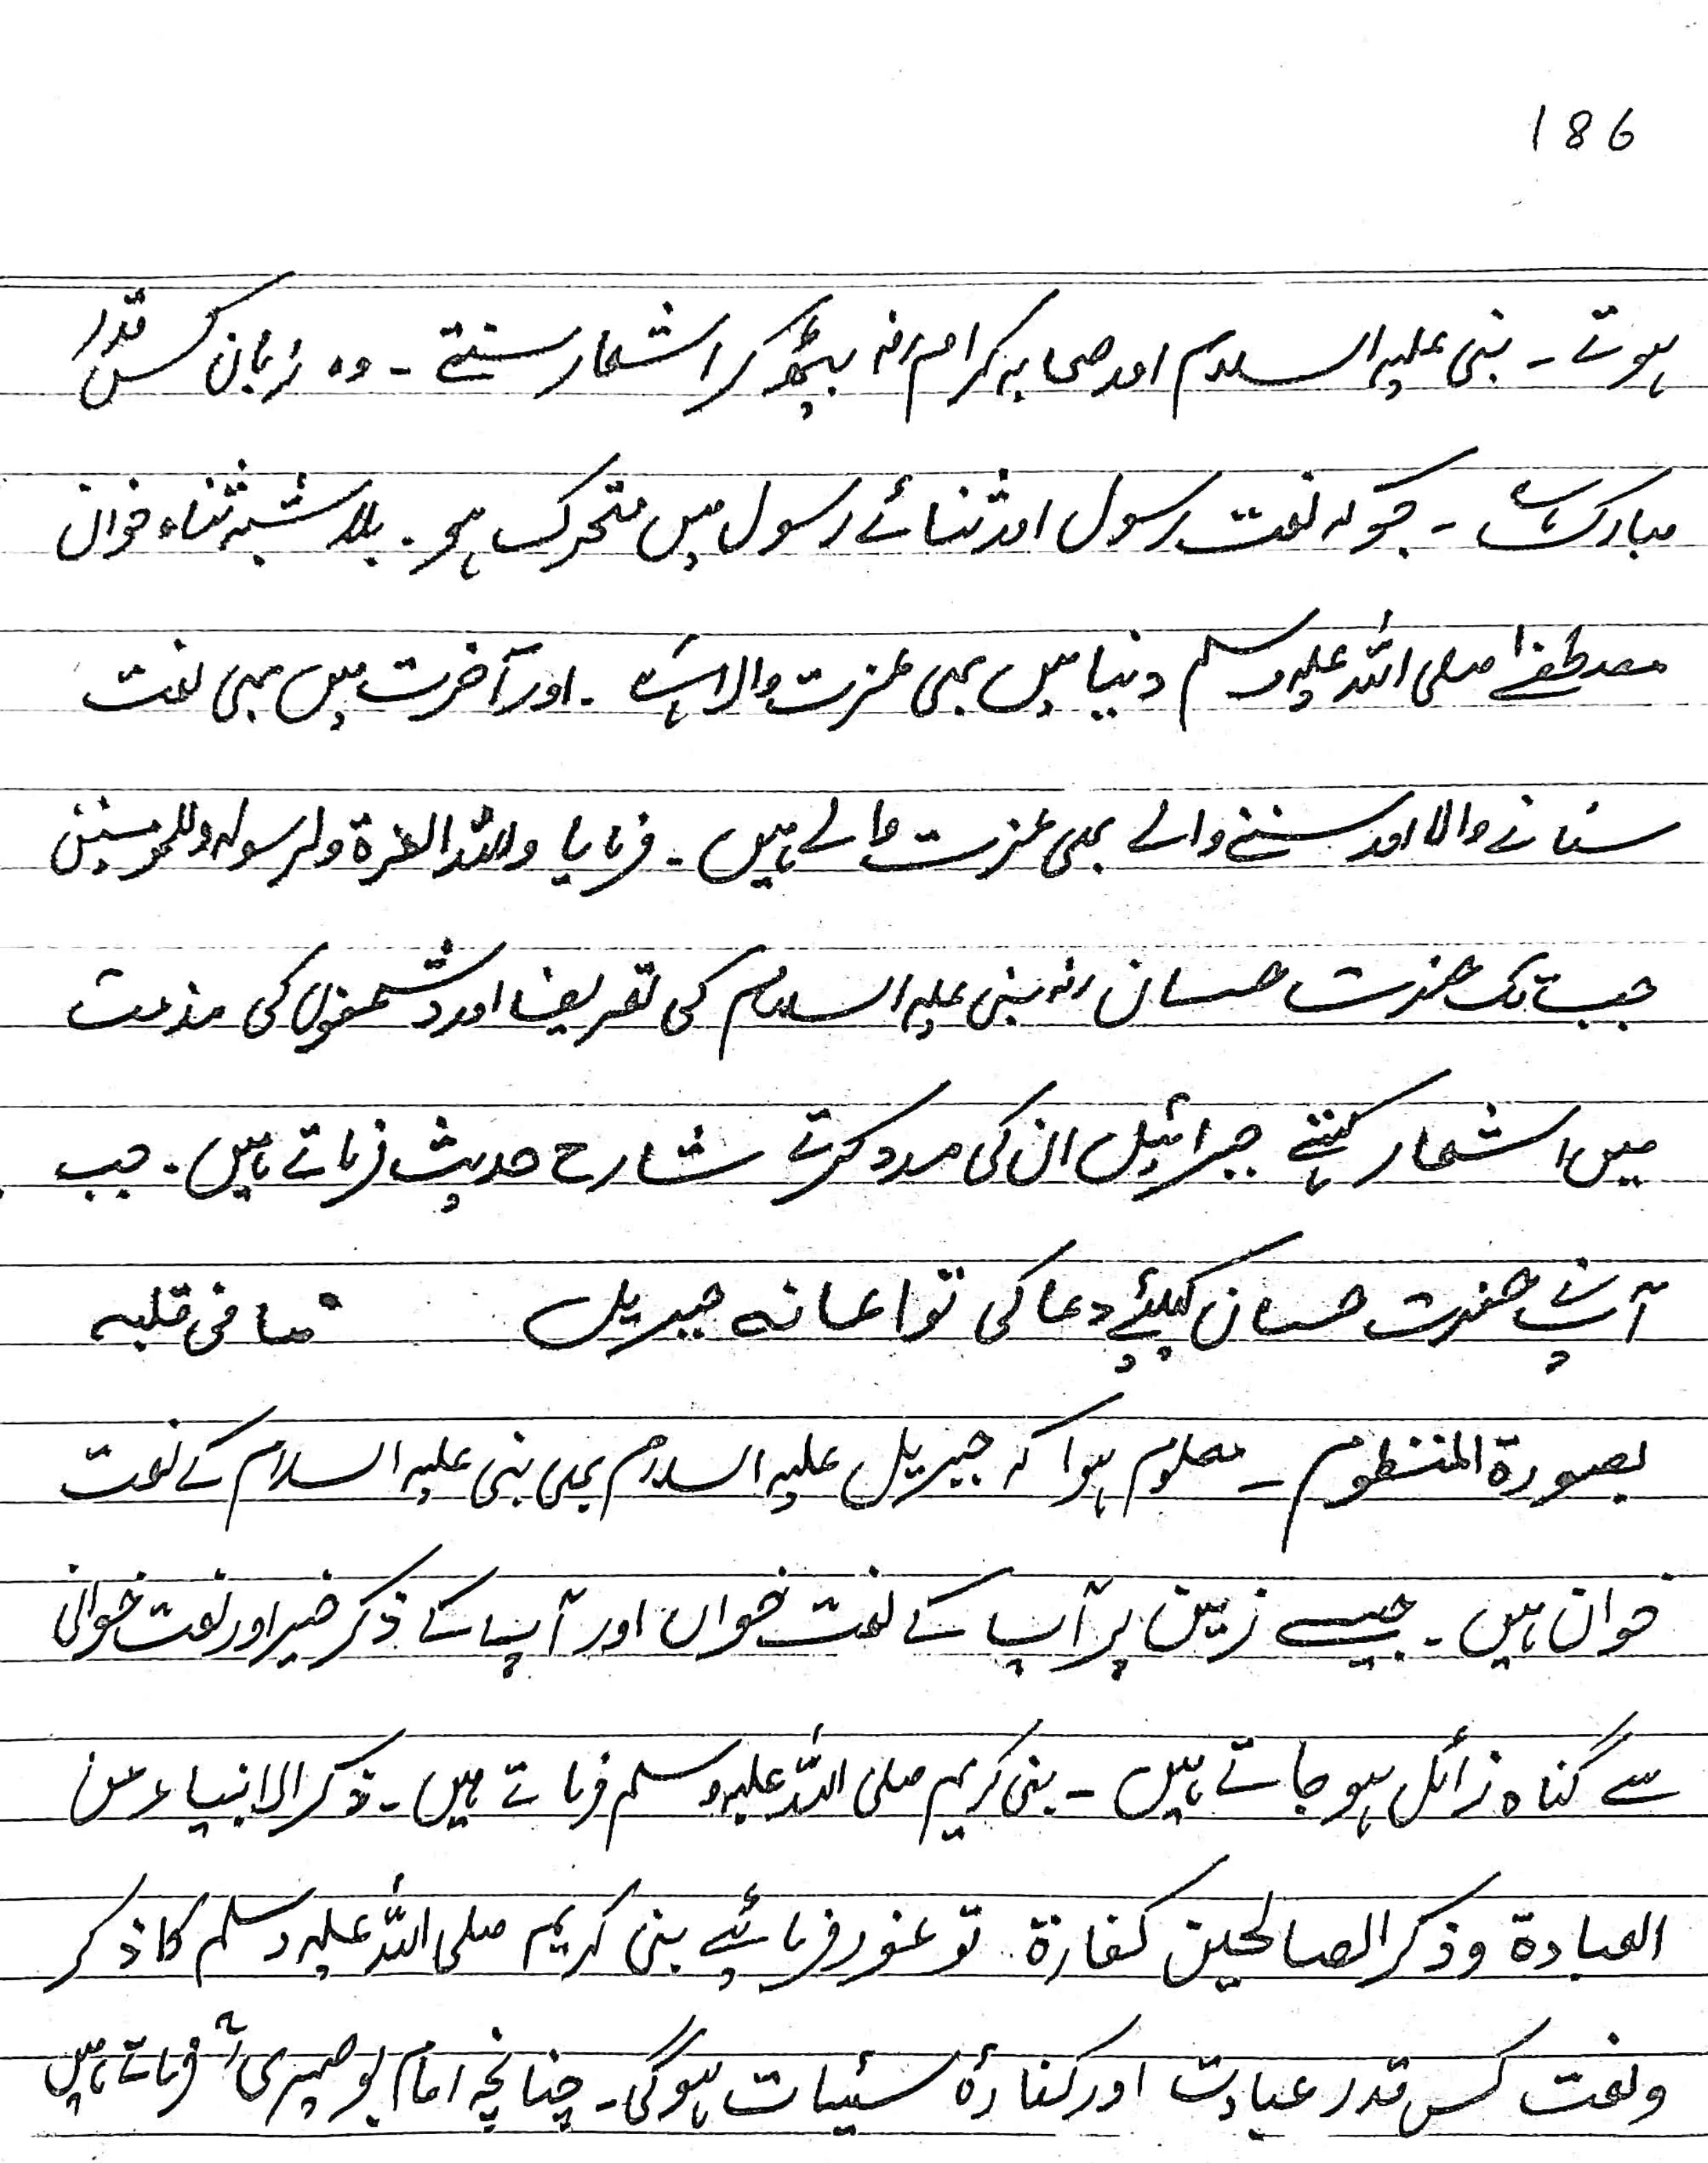 186
ہوتے ۔ نبی علیہ السلام اور صحابہ کرام رضہ بیٹھ کر اشعار سنتے ۔ وہ زبان کس قدر
مبارک ہے ۔ جو کہ نعت رسول اور ثنائے رسول میں متحرک ہو ۔ بلا شبہ ثناء خوان
مصطفےٰ صلی اللہ علیہ وسلم دنیا میں بھی عزت والا ہے ۔ اور آخرت میں بھی نعت
سنانے والا اور سننے والے بھی عزت والے ہیں ۔ فرمایا وللہ العزة ولرسولہ وللمومنین
جب تک حضرت حسان رضہ نبی علیہ السلام کی تعریف اور دشمنوں کی مذمت
میں اشعار کہتے جبرائیل ان کی مدد کرتے شارح حدیث فرماتے ہیں ۔ جب
آپ نے حضرت حسان کیلئے دعا کی تو اعانہ جبریل فی قلبہ
بصورة المنظوم ۔ معلوم ہوا کہ جبریل علیہ السلام بھی نبی علیہ السلام کے نعت
خوان ہیں ۔ جیسے زمین پر آپ کے نعت خواں اور آپ کے ذکر خیر اور نعت خوانی
سے گناہ زائل ہو جاتے ہیں ۔ نبی کریم صلی اللہ علیہ وسلم فرماتے ہیں ۔ ذکر الانبیاء من
العبادة و ذکر الصالحین کفارة تو غور فرمائیے نبی کریم صلی اللہ علیہ وسلم کا ذکر
و نعت کس قدر عبادت اور کفارۂ سئیات ہوگی ۔ چنانچہ امام بوصیری رح فرماتے ہیں